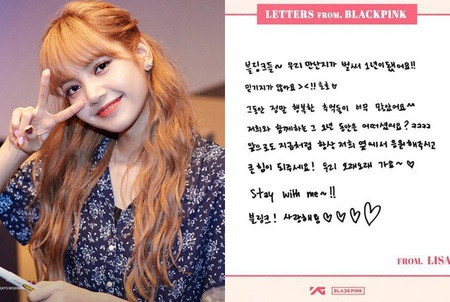 LETTERS FROM. BLACKPINK
블링크들~ 우리 만난지가 벌써 1년이됐어요!!
믿기지가 않아요 ><!! ㅎㅎ
그동안 정말 행복한 추억들이 너무 많았어요~
저희와 함께하는 그 1년 동안은 어떠셨어요? ㅋㅋㅋㅋ
앞으로도 지금처럼 항상 저희 옆에서 응원해주시고
큰 힘이 되주세요! 우리 오래오래 가요~♡
Stay with me~!!
블링크! 사랑해요♡♡♡♡
FROM. LISA
YG BLACKPINK